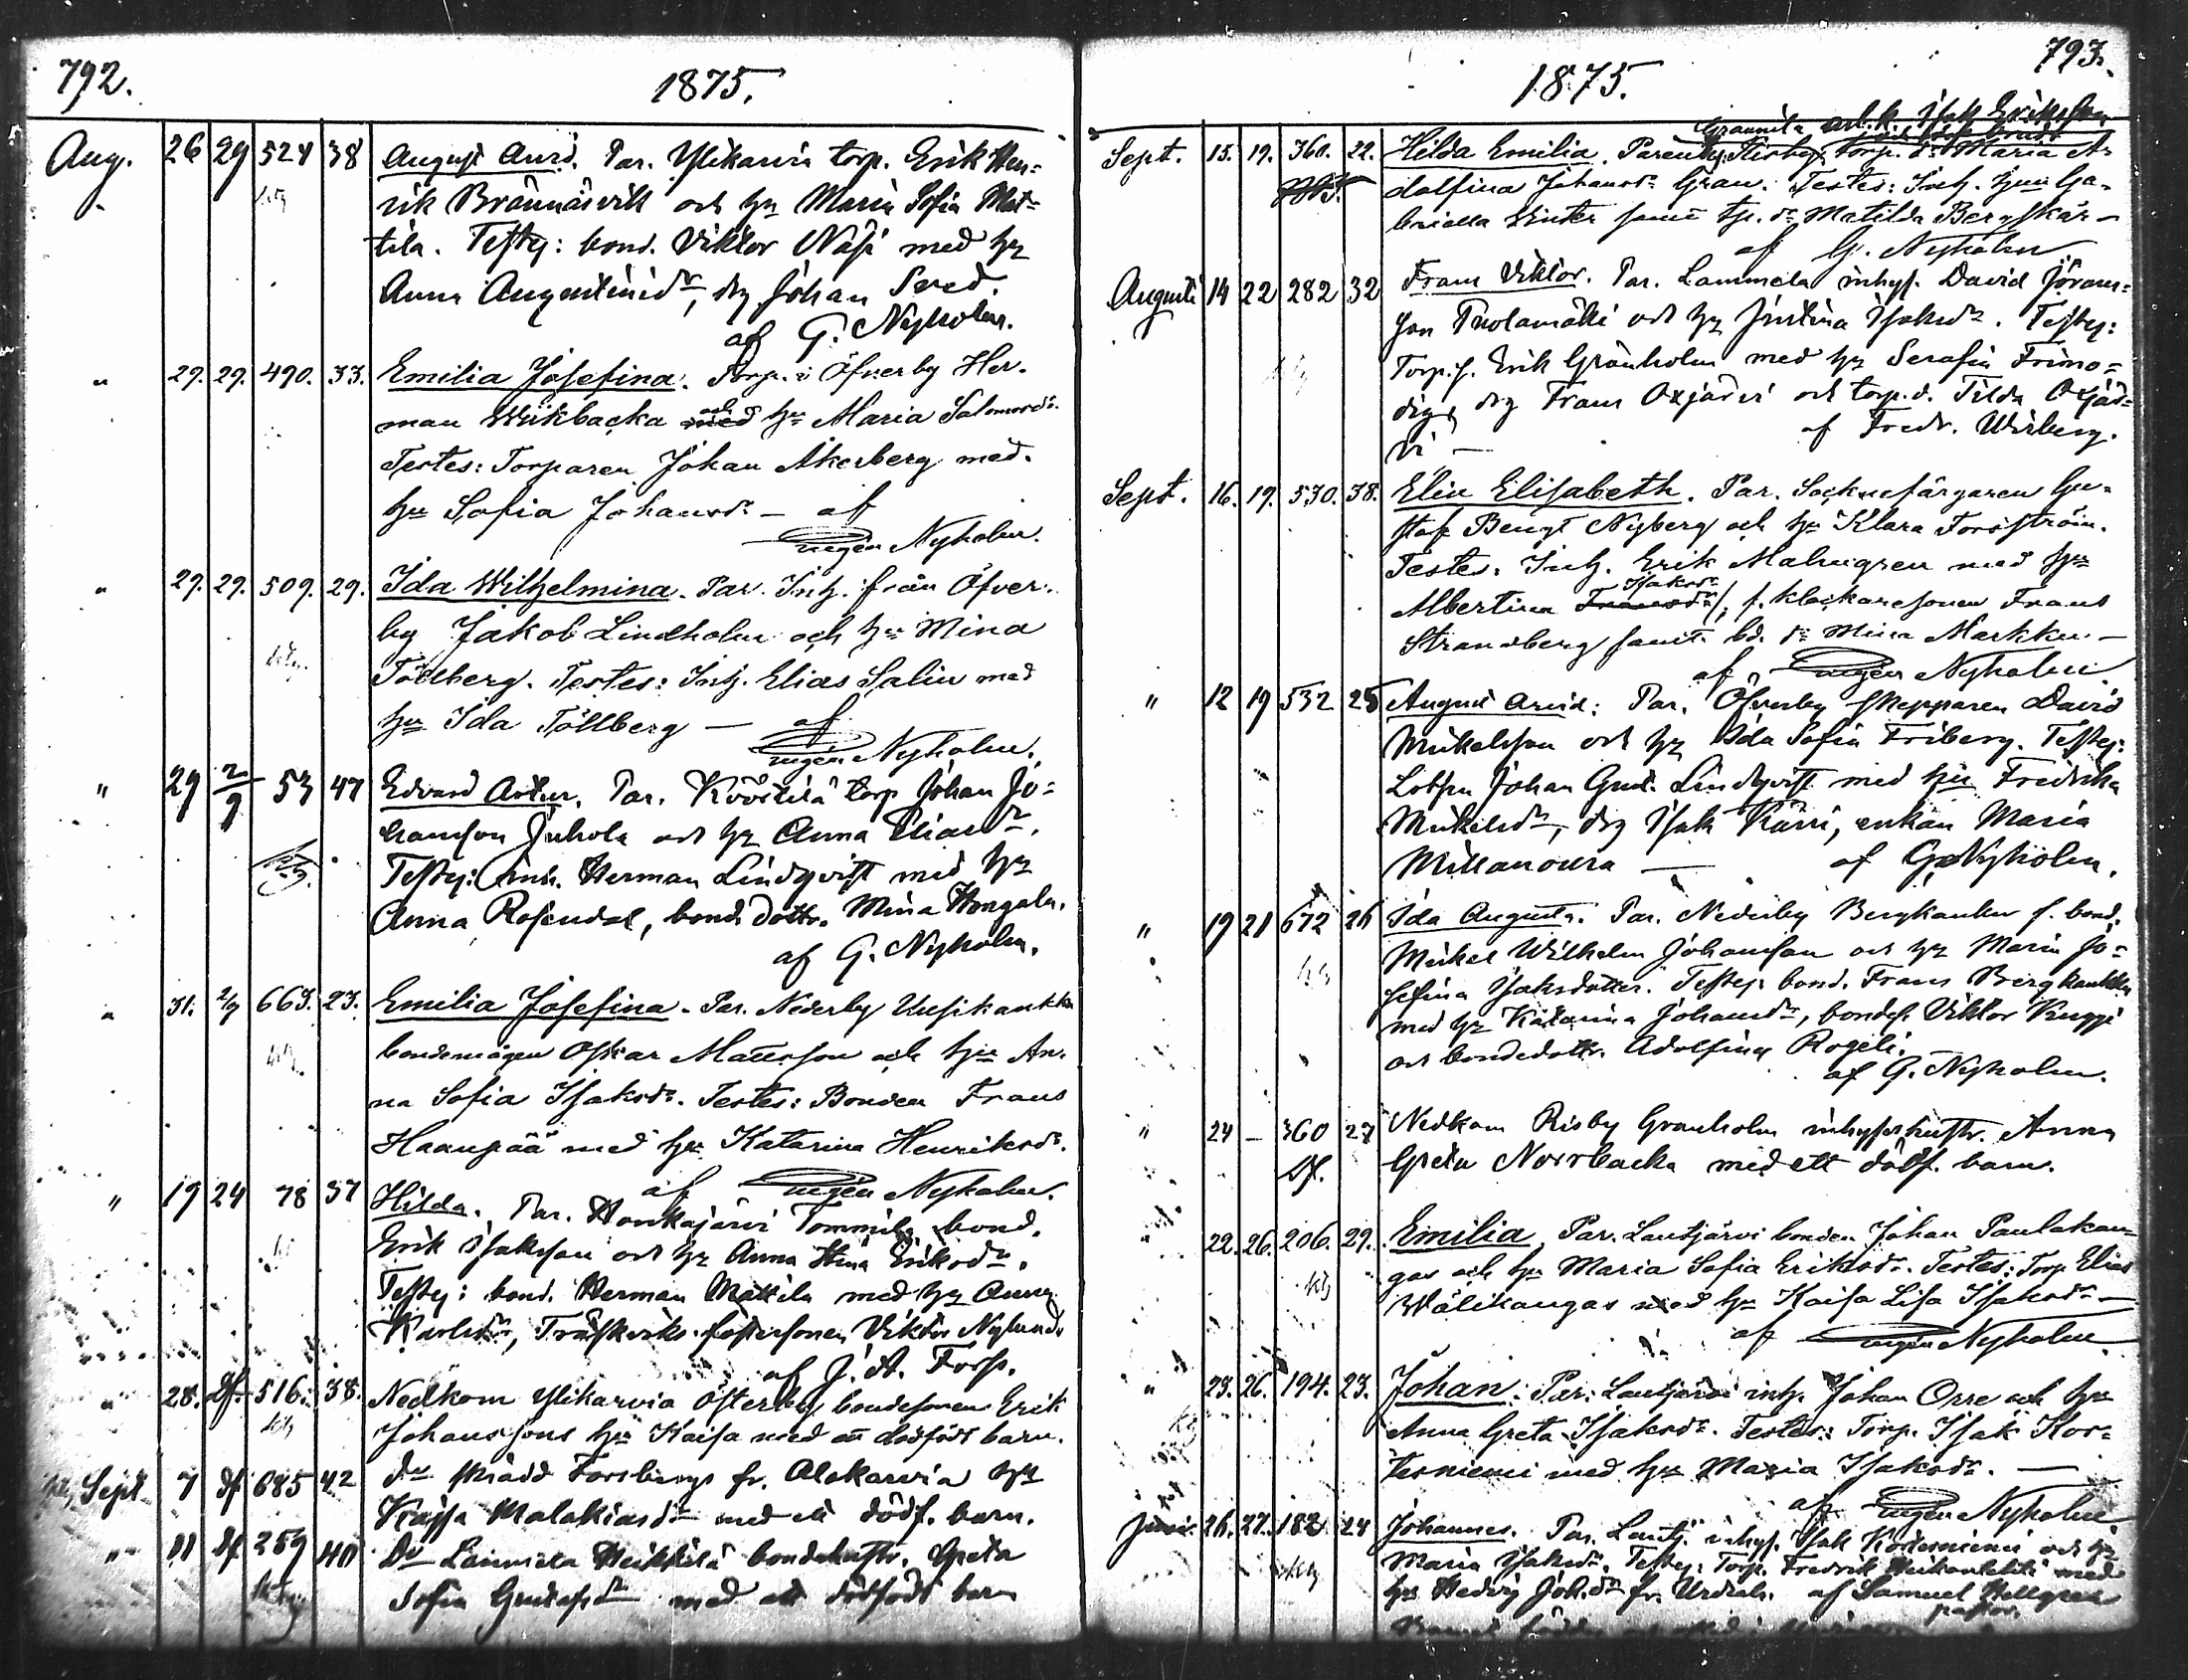 792.
1875.
Aug. 26 29 524 38 August Arvid. Par. Ylikarvia torp. Erik Hen-
rik Brännäsvik och hu Maria Sofia Mat-
tila. Testes: bond. Viktor Näsi med hu
Anna Augustinidr, drg Johan Sved.
af G. Nyholm.
" 27. 29. 490. 33. Emilia Josefina. Torp. i Öfverby Her-
man Wiikbacka med och hu Maria Salomonsdr.
Testes: Torparen Johan Åkerberg med
hu Sofia Johansdr — af
Nyholm.
" 27. 29. 509. 29. Ida Wilhelmina. Par. Inh. från Öfver-
by Jakob Lindholm och hu Mina
Töllberg. Testes: Inh. Elias Salin med
hu Ida Töllberg — af
Nyholm.
" 29 2/9 53 47 Edvard Artur. Par. Torp Johan Jo-
hansson Juhola och hu Anna Eliasdr.
Testes: inh. Herman Lindqvist med hu
Anna Rosendal, bond. dottr. Mina Hongala.
af G. Nyholm.
" 31. 2/9 663. 23. Emilia Josefina. Par. Nederby Uusikankka
bondemågen Oskar Matsson och hu An-
na Sofia Isaksdr. Testes: Bonden Frans
Haanpää med hu Katarina Henriksdr.
af Nyholm.
" 19 24 78 37 Hilda. Par. Honkajärvi Tommila bond.
Erik Isaksson och hu Anna Stina Eriksdr.
Testes: bond. Herman Mattila med hu Anna
Karlsdr, Träskviks fostersonen Viktor Nylund.
af J. A. Forss.
" 28. Df. 516. 38. Nedkom Ylikarvia Österby bondesonen Erik
Johanssons hu Kaisa med ett dödfödt barn.
Sept. 7 df 685 42 do skrädd Forsbergs fr. Alakarvia hu
Kajsa Malakiasdr med ett dödf. barn.
" 11 df 259 40 Do Lammela Heikkilä bondehustr. Greta
Sofia Gustafsdr med ett dödfödt barn
793.
1875.
Grannila Isak Eriksson
Sept. 15. 19. 360. 22. Hilda Emilia. Parentes: Risby torp. dr Maria A-
dolfina Johansdr Gran. Testes: Inh. hu Ga-
briella Winter samt tp. dr Matilda Bergskär —
af G. Nyholm
Augusti 14 22 282 32 Frans Viktor. Par. Lammela inhys. David Jörans-
son Tuolamäki och hu Justina Isaksdr. Testes:
Torp. s. Erik Grönholm med hu Serafia Frimo-
dig, drg Frans Oxjärvi och torp. d. Tilda Oxjär-
vi — af Fredr. Wiberg.
Sept. 16. 19. 530. 38. Elin Elisabeth. Par. Socknefärgaren Gu-
staf Bengt Nyberg och hu Klara Forsström.
Testes: Inh. Erik Malmgren med hu
Albertina Fransdr Isaksdr, f. klockaresonen Frans
Strandberg samt bd. dr Mina Markku —
af Nyholm
" 12 19 532 25 August Arvid: Par. Öfverby skepparen David
Mikelsson och hu Ida Sofia Friberg. Testes:
Lotsen Johan Gust. Lindqvist med hu Fredrika
Mikelsdr, drg Isak Kärri, enkan Maria
Millanoura — af G. Nyholm.
" 19 21 672 26 Ida Augusta. Par. Nederby Bergkankku f. bond.
Mikel Wilhelm Johansson och hu Maria Jo-
sefina Isaksdotter. Testes: bond. Frans Bergkankku
med hu Katarina Johansdr, bondes. Viktor Kuppi
och bondedottr. Adolfina Rogeli.
af G. Nyholm.
" 24 — 360 27 Nedkom Risby Granholm inhyseshustr. Anna
Df. Greta Norrbacka med ett dödf. barn.
22. 26. 206. 29. Emilia. Par. Lautjärvi bonden Johan Paulakan-
gas och hu Maria Sofia Eriksdr. Testes: Torp. Elias
Wälikangas med hu Kaisa Lisa Isaksdr —
af Nyholm
" 23. 26. 194. 23. Johan. Par. Lautjärvi inh. Johan Orre och hu
Anna Greta Isaksdr. Testes: Torp. Isak Kor-
tesniemi med hu Maria Isaksdr. —
af Nyholm
Juni 26. 27. 182 24 Johannes. Par. Lautj. inhys. Isak Kortesniemi och hu
Maria Isaksdr. Testes: Torp. Fredrik med
hu Hedvig Joh.dr fr. af Samuel Hellgren
pastor.